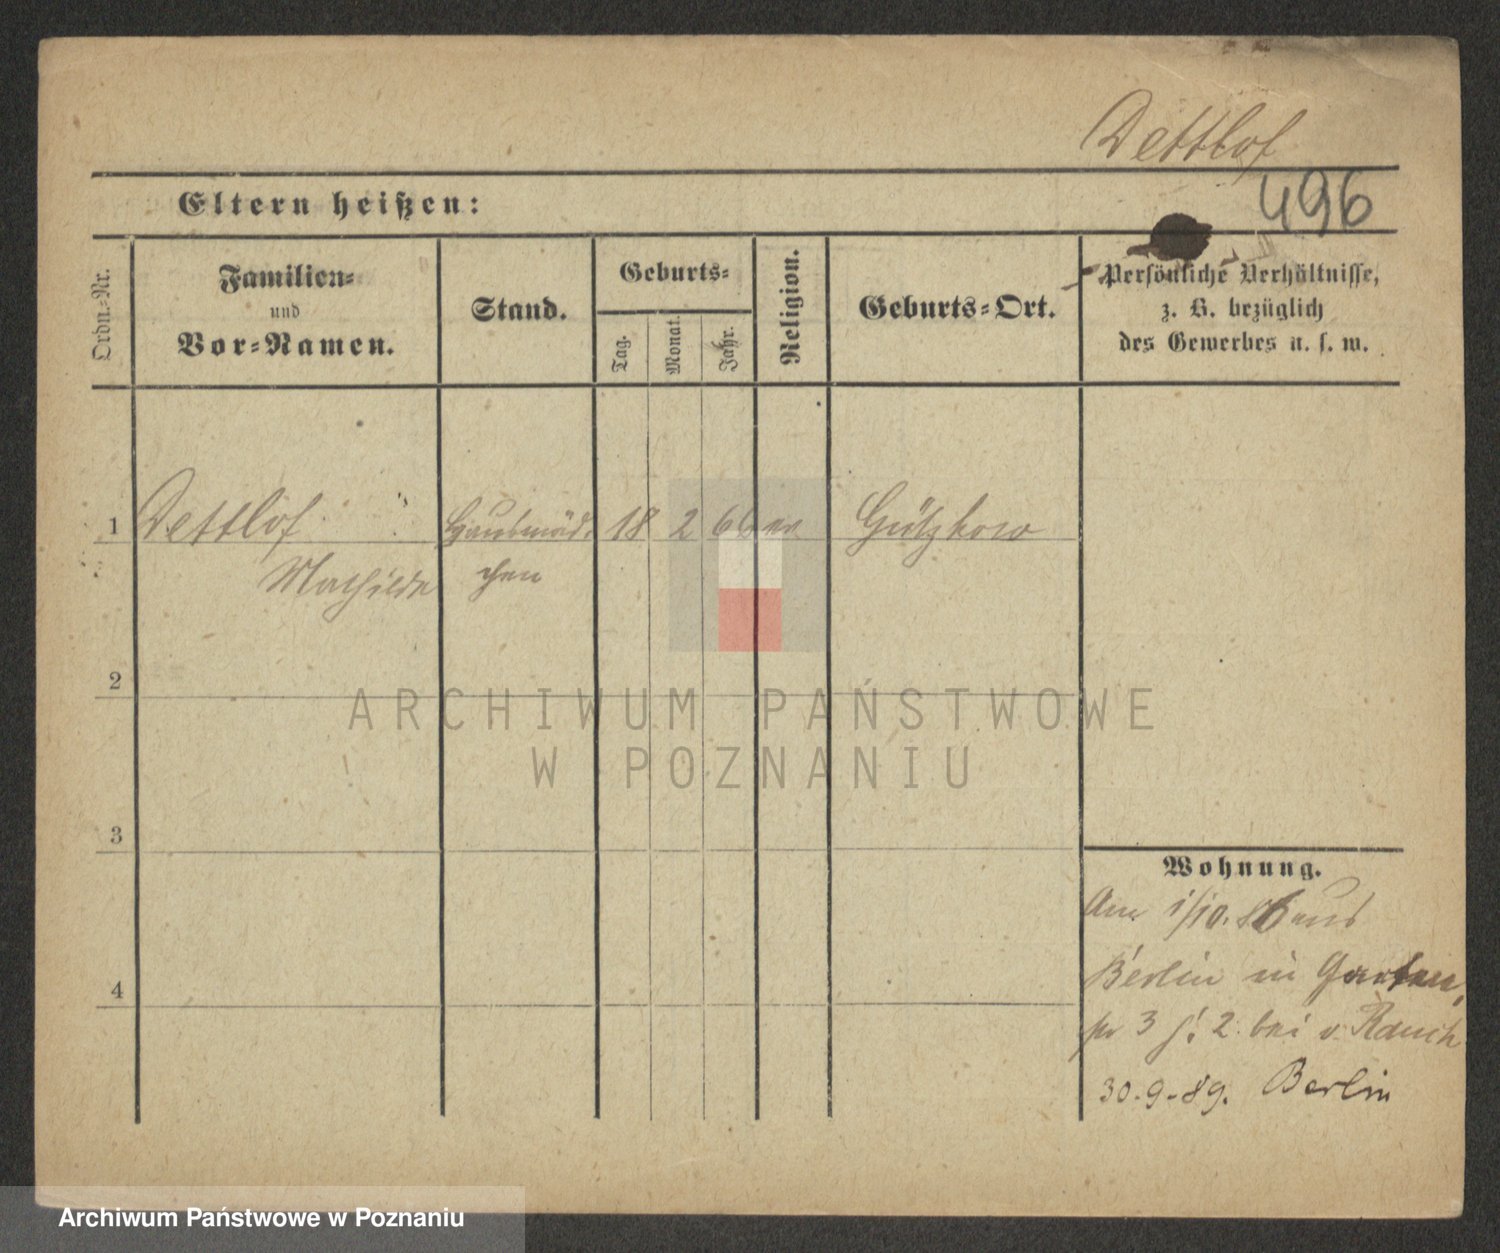 Dettlof
Eltern heißen:
496
Ordn.-Nr.
Familien-
und
Vor-Namen.
Stand.
Geburts-
Tag.
Monat.
Jahr.
Religion.
Geburts-Ort.
Persönliche Verhältnisse,
z. B. bezüglich
des Gewerbes u. s. w.
1
Dettlof
Hausmäd-
18
2
66
ev
Gützkow
Mathilde
chen
2
ARCHIWUM PAŃSTWOWE
W POZNANIU
3
Wohnung.
Am 1/10. 86 aus
4
Berlin in Garten
3 2 bei v. Rauch
30.9.89. Berlin
Archiwum Państwowe w Poznaniu